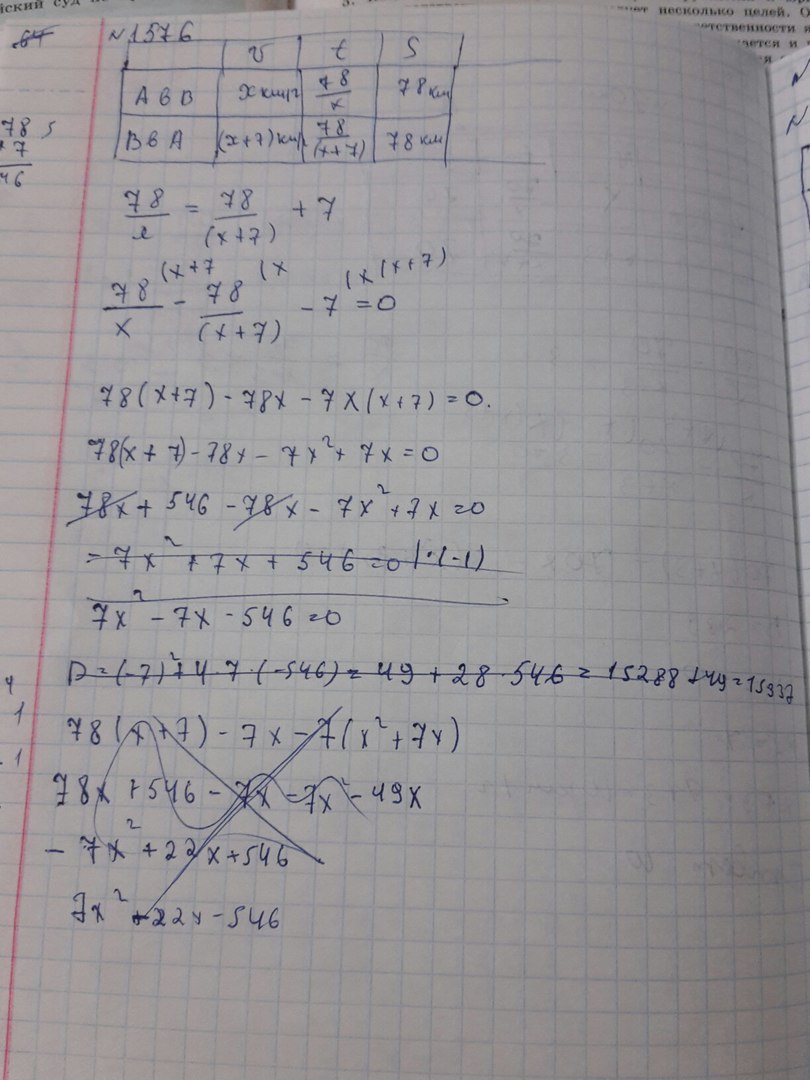 йский суд
несколько целей. О
етственности
ается и
№1576
v t S
А в В x км/ч 78/x 78 км
В в А (x+7) км/ч 78/(x+7) 78 км
78
7
46
78/x = 78/(x+7) + 7
(x+7 (x (x(x+7)
78/x - 78/(x+7) - 7 = 0
78(x+7) - 78x - 7x(x+7) = 0.
78(x+7) - 78x - 7x² + 7x = 0
78x + 546 - 78x - 7x² + 7x = 0
= 7x² + 7x + 546 = 0 |·(-1)
7x² - 7x - 546 = 0
D = (-7)² + 4·7·(-546) = 49 + 28·546 = 15288 + 49 = 15337
78(x+7) - 7x - 7(x² + 7x)
78x + 546 - 7x - 7x² - 49x
- 7x² + 22x + 546
7x² - 22x - 546